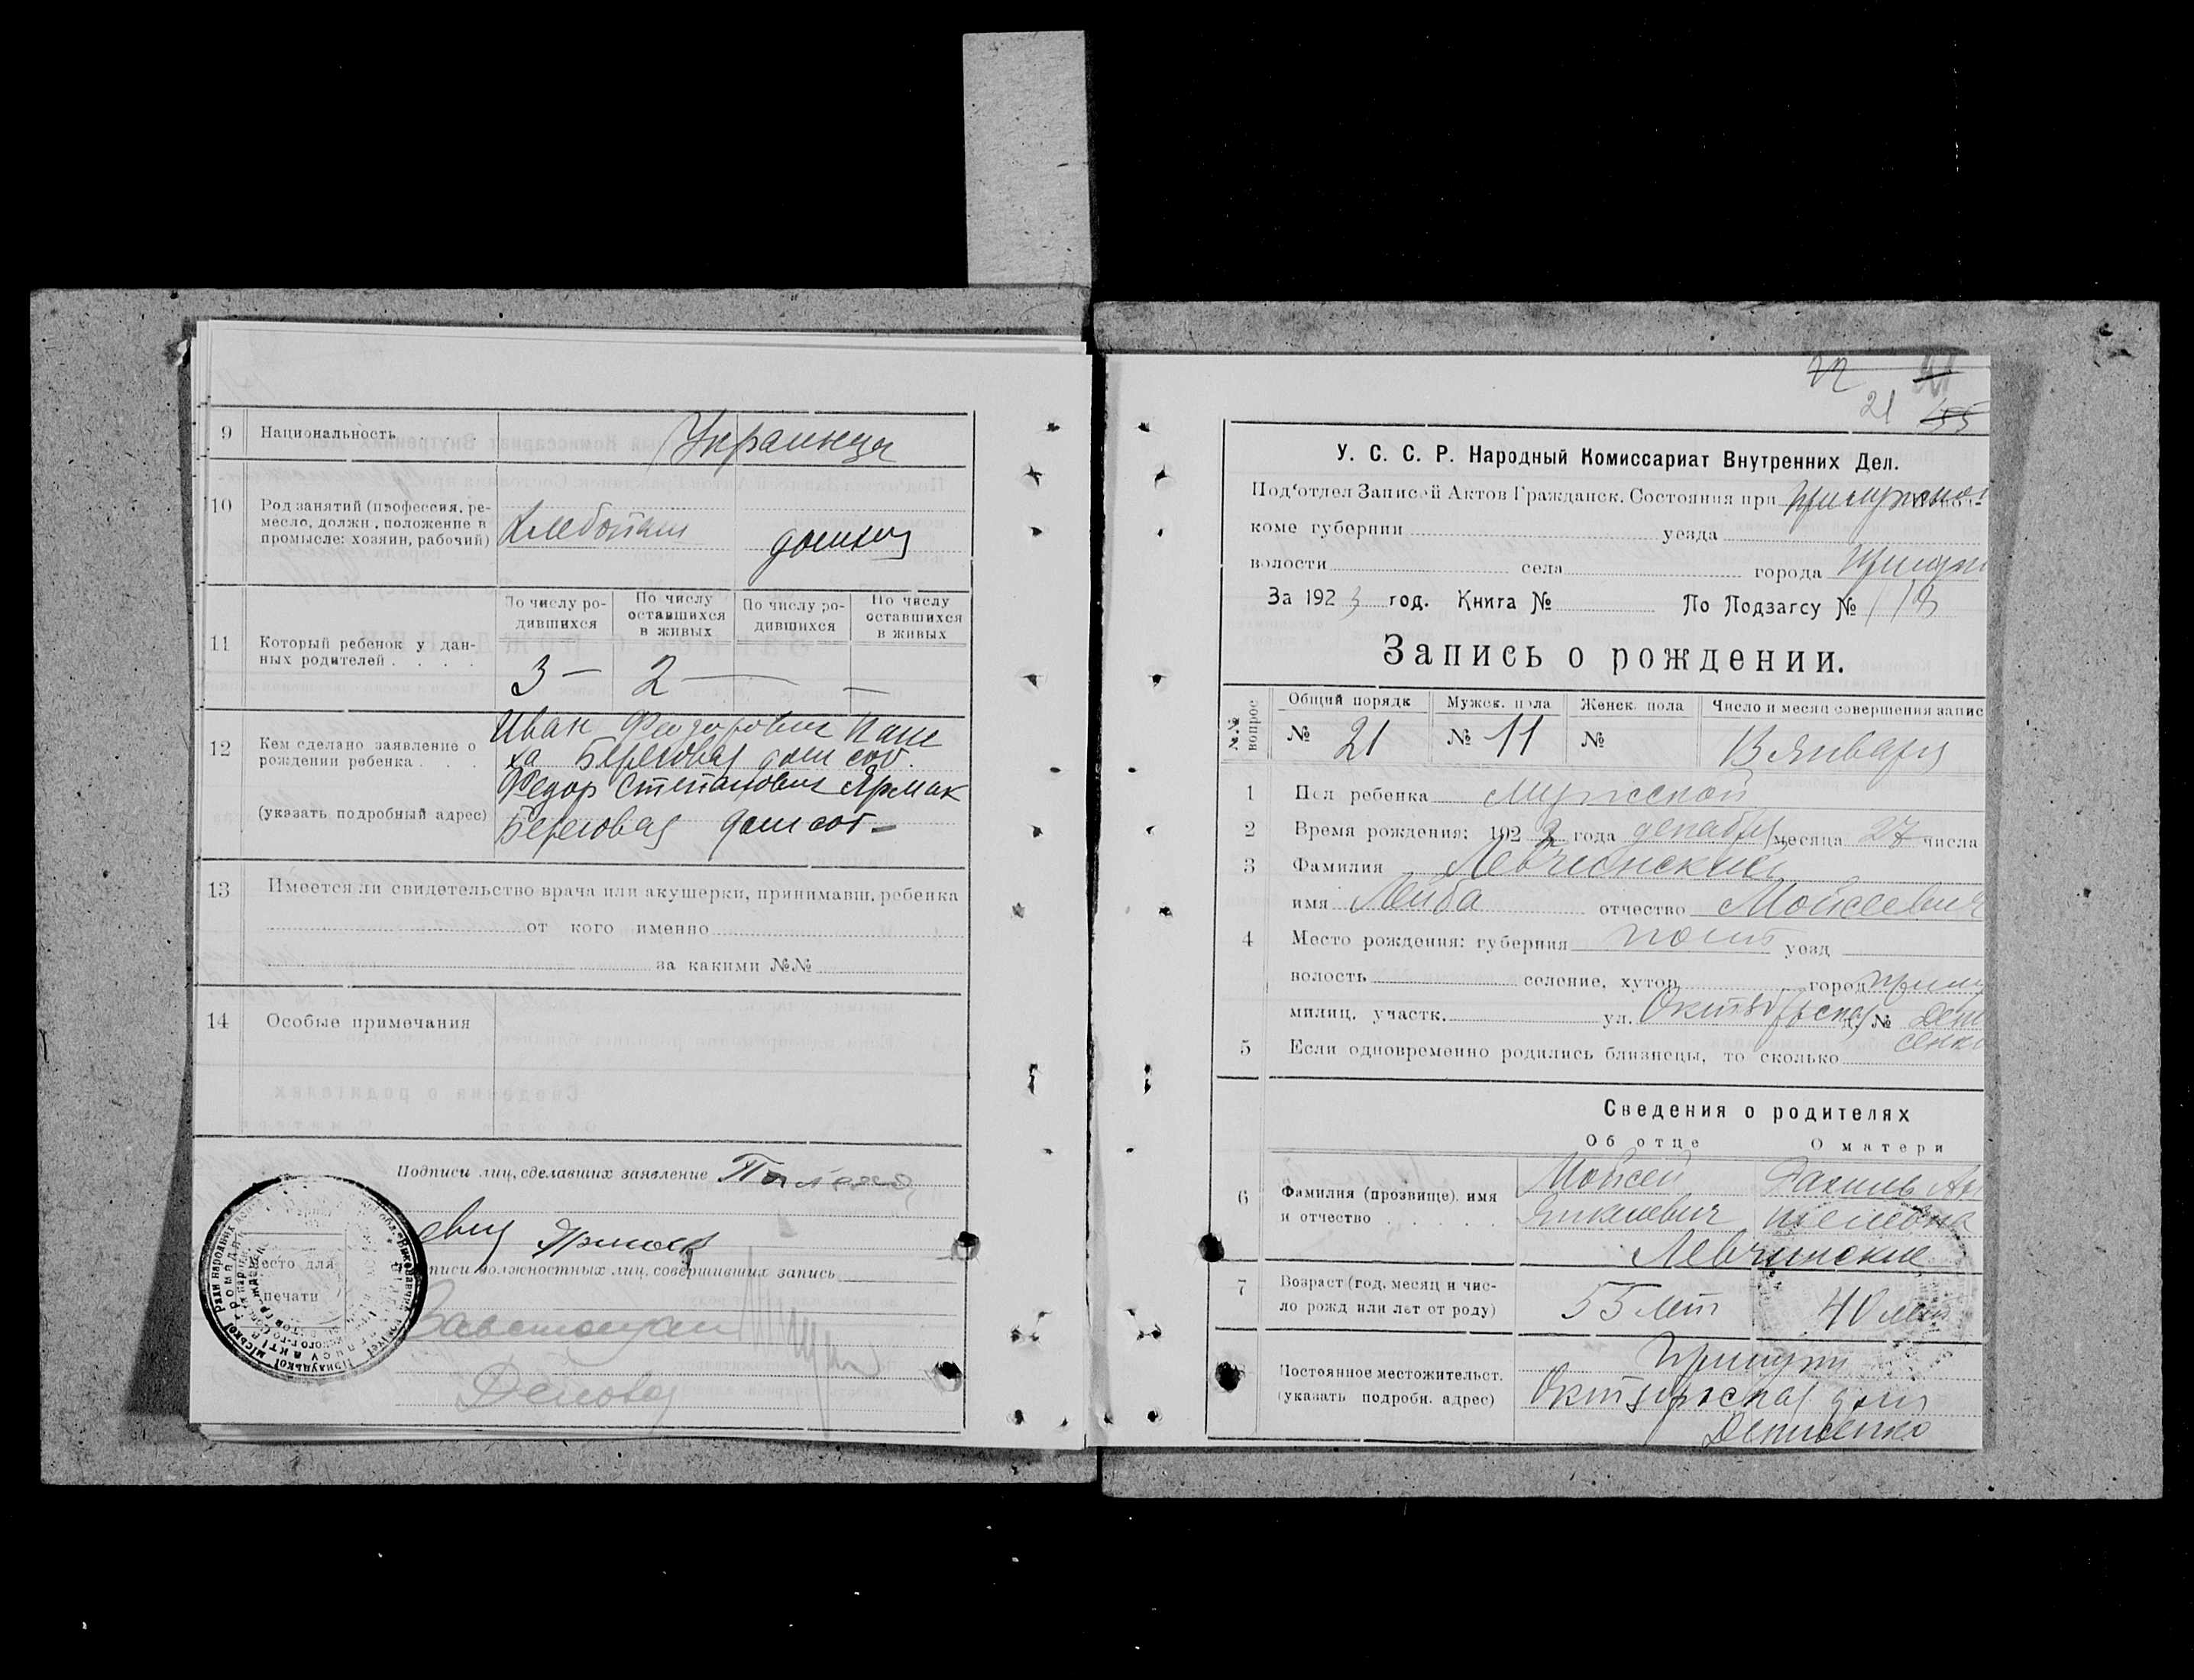 9 Национальность Украинцы
10 Род занятий (профессия, ре-
месло, должн., положение в
промысле: хозяин, рабочий) Хлебопаш домхоз
По числу ро-
дившихся
По числу
оставшихся
в живых
По числу ро-
дившихся
По числу
оставшихся
в живых
11 Который ребенок у дан-
ных родителей . . . .
3 — 2 — —
12 Кем сделано заявление о
рождении ребенка . . .
(указать подробный адрес)
Иван Феодорович Паш
ха Береговая дом соб.
Федор Степанович Ярмак
Береговая дом соб —
13 Имеется ли свидетельство врача или акушерки, принимавш. ребенка
от кого именно
за какими №№
14 Особые примечания
Подписи лиц, сделавших заявление
Ярмак
писи должностных лиц, совершивших запись
Место для
печати
Завстолом
Делово
22
21 155
У. С. С. Р. Народный Комиссариат Внутренних Дел.
Под'отдел Записей Актов Гражданск. Состояния при Прилукском
коме губернии уезда
волости села города Прилуки
За 1923 год. Книга № По Подзагсу № 113
Запись о рождении.
№№ вопрос
Общий порядк
№ 21
Мужск. пола
№ 11
Женск. пола
№
Число и месяц совершения запис
13 Января
1 Пол ребенка Мужской
2 Время рождения: 1922 года декабря месяца 27 числа
3 Фамилия Левчинский
имя Лейба отчество Мойсеевич
4 Место рождения: губерния Полт уезд
волость селение, хутор город Прилу
милиц. участк. ул. Октябрьская д. № Дени
сенко
5 Если одновременно родились близнецы, то сколько
Сведения о родителях
Об отце О матери
6 Фамилия (прозвище), имя
и отчество . . . . .
Мойсей Рахиль
Янкелевич
Левчинские
7 Возраст (год, месяц и чис-
ло рожд или лет от роду)
55 лет 40 лет
8 Постоянное местожительст.
(указать подробн. адрес)
Прилуки
Октябрьская дом
Денисенко